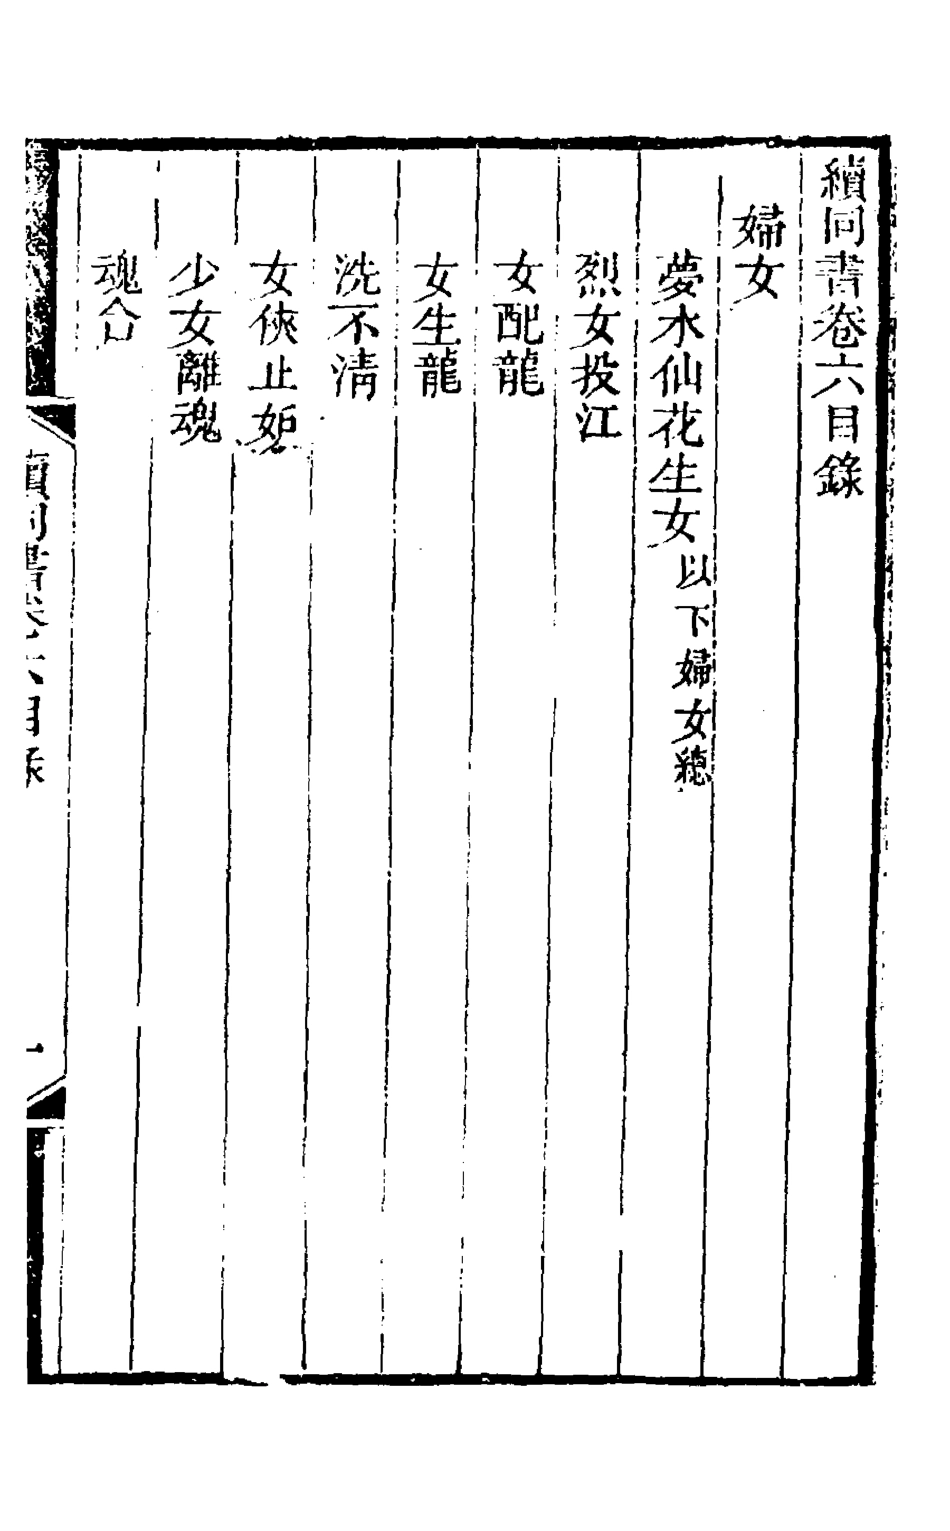 續同書卷六目錄
婦女
夢水仙花生女以下婦女總
烈女投江
女配龍
女生龍
洗不淸
女俠止妬
少女離魂
魂合
續同書卷六目錄
一